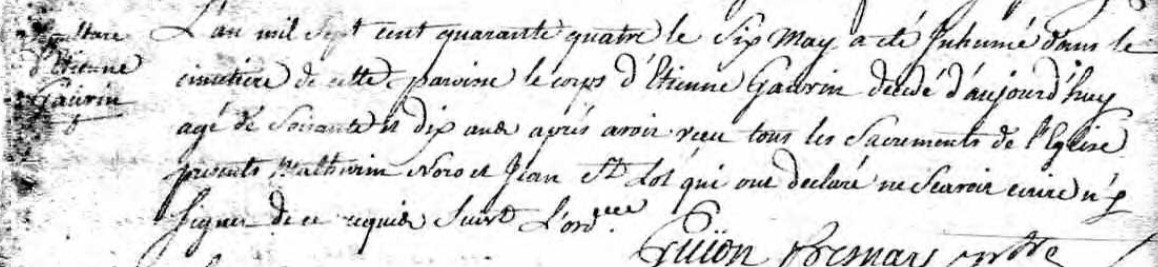 Sepulture
d'Etienne
Gauvin
L'an mil Sept cent quarante quatre le Six May a eté Inhumé dans le
cimetiere de cette paroisse le corps d'Etienne Gauvin decedé d'aujourd'huy
agé de Soixante et dix ans après avoir receu tous les Sacrements de l'Eglise
presents Mathurin Noro et Jean St Lot qui ont declaré ne Scavoir ecrire n'y
Signer de ce requis Suivt L'ordce
Guïon fresnay